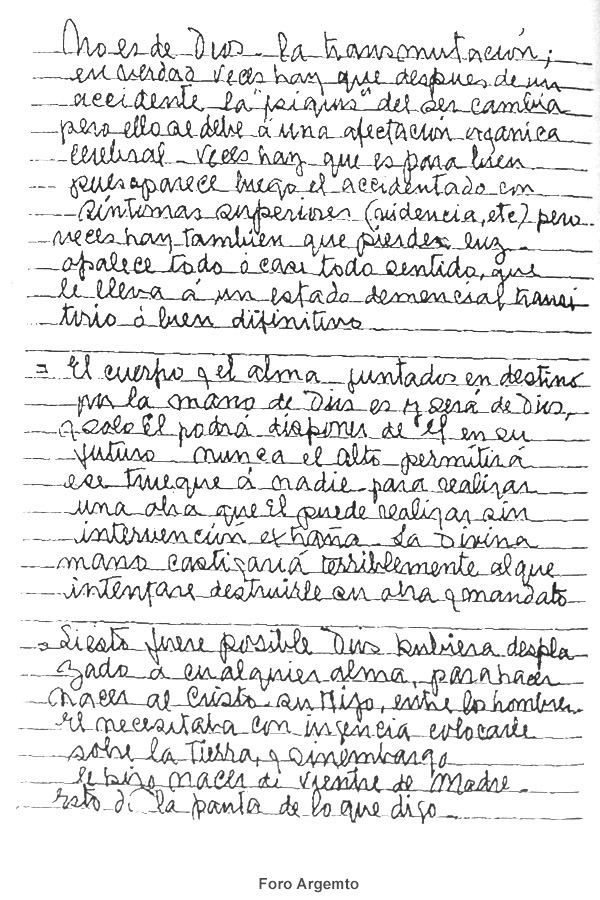 No es de Dios. la transmutación;
en verdad veces hay que despues de un
accidente la "psiquis" del ser cambia
pero ello se debe á una afectación organica
cerebral - veces hay que es para bien
pues aparece luego el accidentado con
sintomas superiores (videncia, etc) pero
veces hay tambien que pierde luz
opalece todo o casi todo sentido, que
le lleva á un estado demencial transi
torio ó bien difinitivo
= El cuerpo y el alma juntados en destino
por la mano de Dios es y será de Dios,
y solo Él podrá disponer de Él en su
futuro nunca el alto permitirá
ese trueque á nadie para realizar
una obra que Él puede realizar sin
intervención extraña. La Divina
mano castigará terriblemente al que
intentare destruirle su obra y mandato
= Si esto fuere posible Dios hubiera despla
zado á cualquier alma, para hacer
nacer al Cristo su Hijo, entre los hombres.
Él necesitaba con urgencia colocarle
sobre la Tierra, y sinembargo
le hizo nacer di vientre de Madre.
Esto dí la pauta de lo que digo.
Foro Argemto